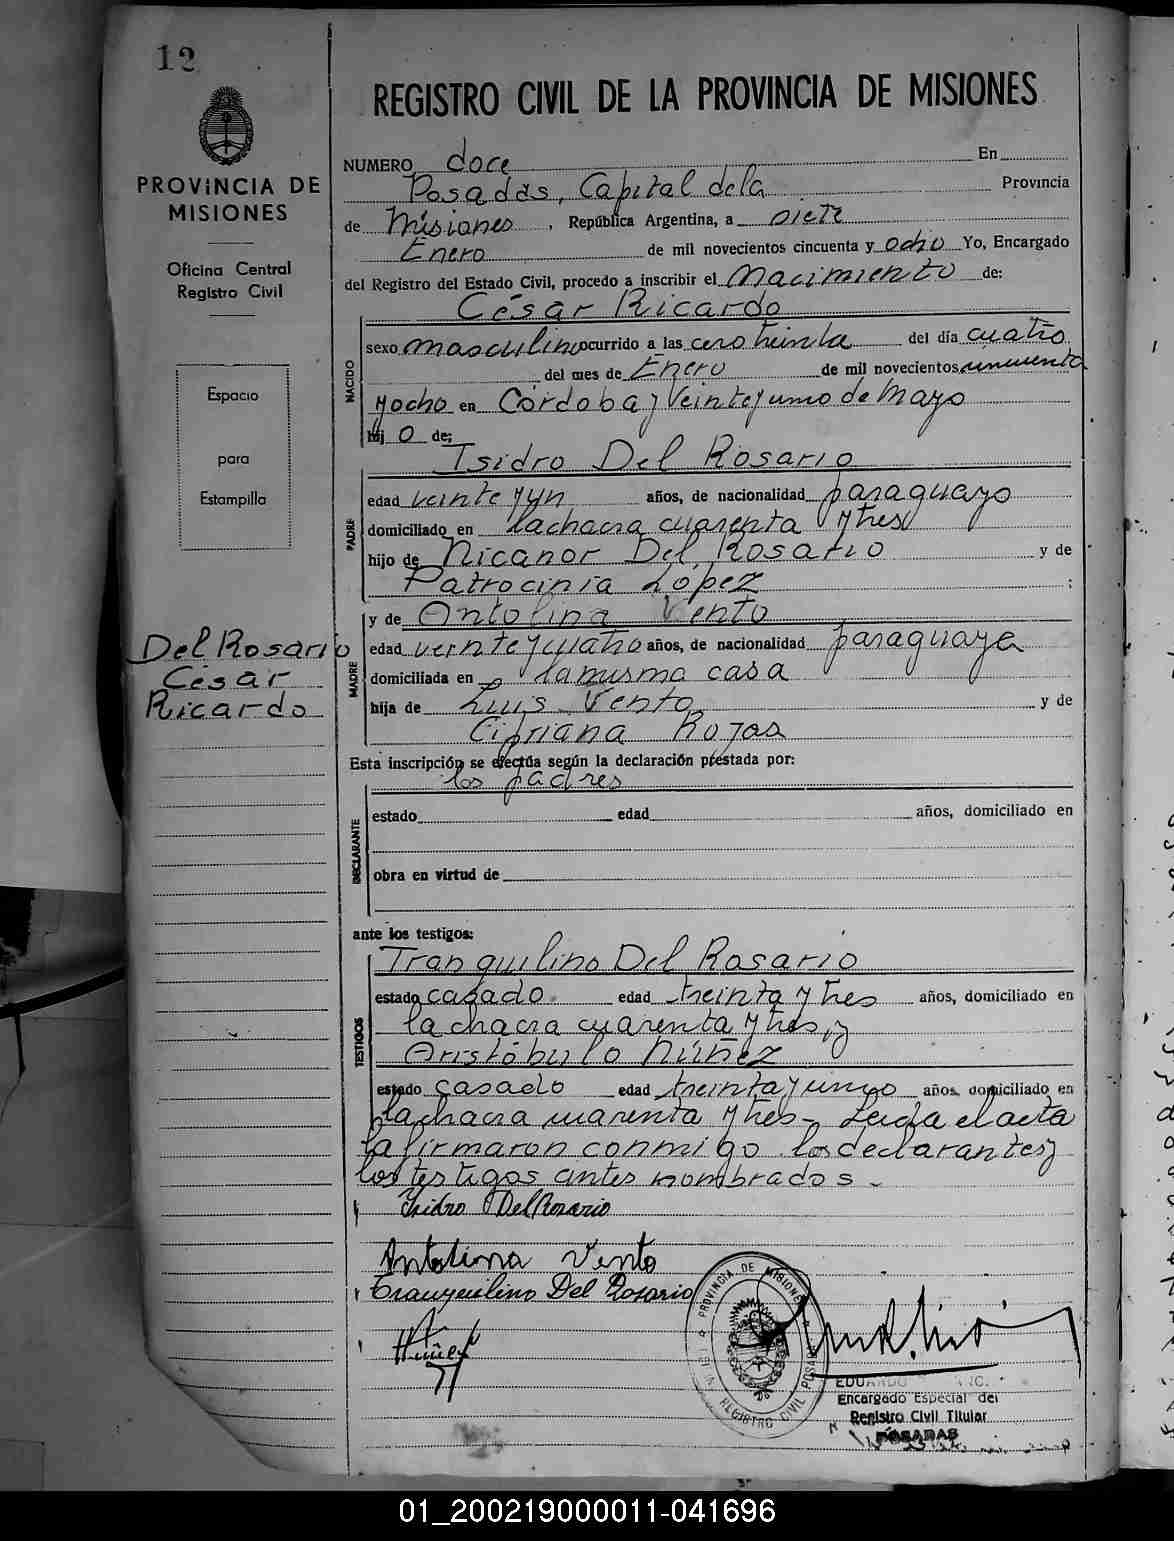 12
REGISTRO CIVIL DE LA PROVINCIA DE MISIONES
PROVINCIA DE
MISIONES
Oficina Central
Registro Civil
Espacio
para
Estampilla
Del Rosario
César
Ricardo
NUMERO doce En
Posadas, Capital de la Provincia
de Misiones, República Argentina, a siete
Enero de mil novecientos cincuenta y ocho Yo, Encargado
del Registro del Estado Civil, procedo a inscribir el Nacimiento de:
César Ricardo
NACIDO
sexo masculino ocurrido a las cero treinta del día cuatro
del mes de Enero de mil novecientos cincuenta
y ocho en Córdoba y Veinte y uno de Mayo
hij o de:
Isidro Del Rosario
PADRE
edad veinte y un años, de nacionalidad paraguayo
domiciliado en la chacra cuarenta y tres
hijo de Nicanor Del Rosario y de
Patrocinia López ;
y de Antolina Vento
MADRE
edad veinte y cuatro años, de nacionalidad paraguaya
domiciliada en la misma casa
hija de Luis Vento y de
Cipriana Rojas
Esta inscripción se efectúa según la declaración prestada por:
los padres
DECLARANTE
estado edad años, domiciliado en
obra en virtud de
ante los testigos:
Tranquilino Del Rosario
TESTIGOS
estado casado edad treinta y tres años, domiciliado en
la chacra cuarenta y tres, y
Aristóbulo Núñez
estado casado edad treinta y uno años, domiciliado en
la chacra cuarenta y tres - Leída el acta
la firmaron conmigo los declarantes y
los testigos antes nombrados.
Isidro Del Rosario
Antolina Vento
Tranquilino Del Rosario
Núñez
PROVINCIA DE MISIONES
REGISTRO CIVIL POSADAS
Encargado Especial del
Registro Civil Titular
POSADAS
01_200219000011-041696